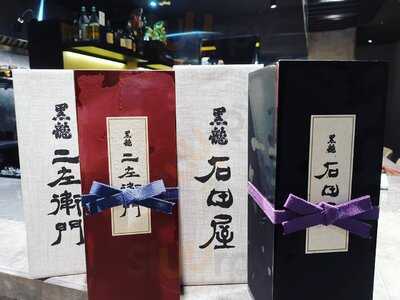 黒龍
二左衛門
黒龍
二左衛門
黒龍
石田屋
黒龍
石田屋